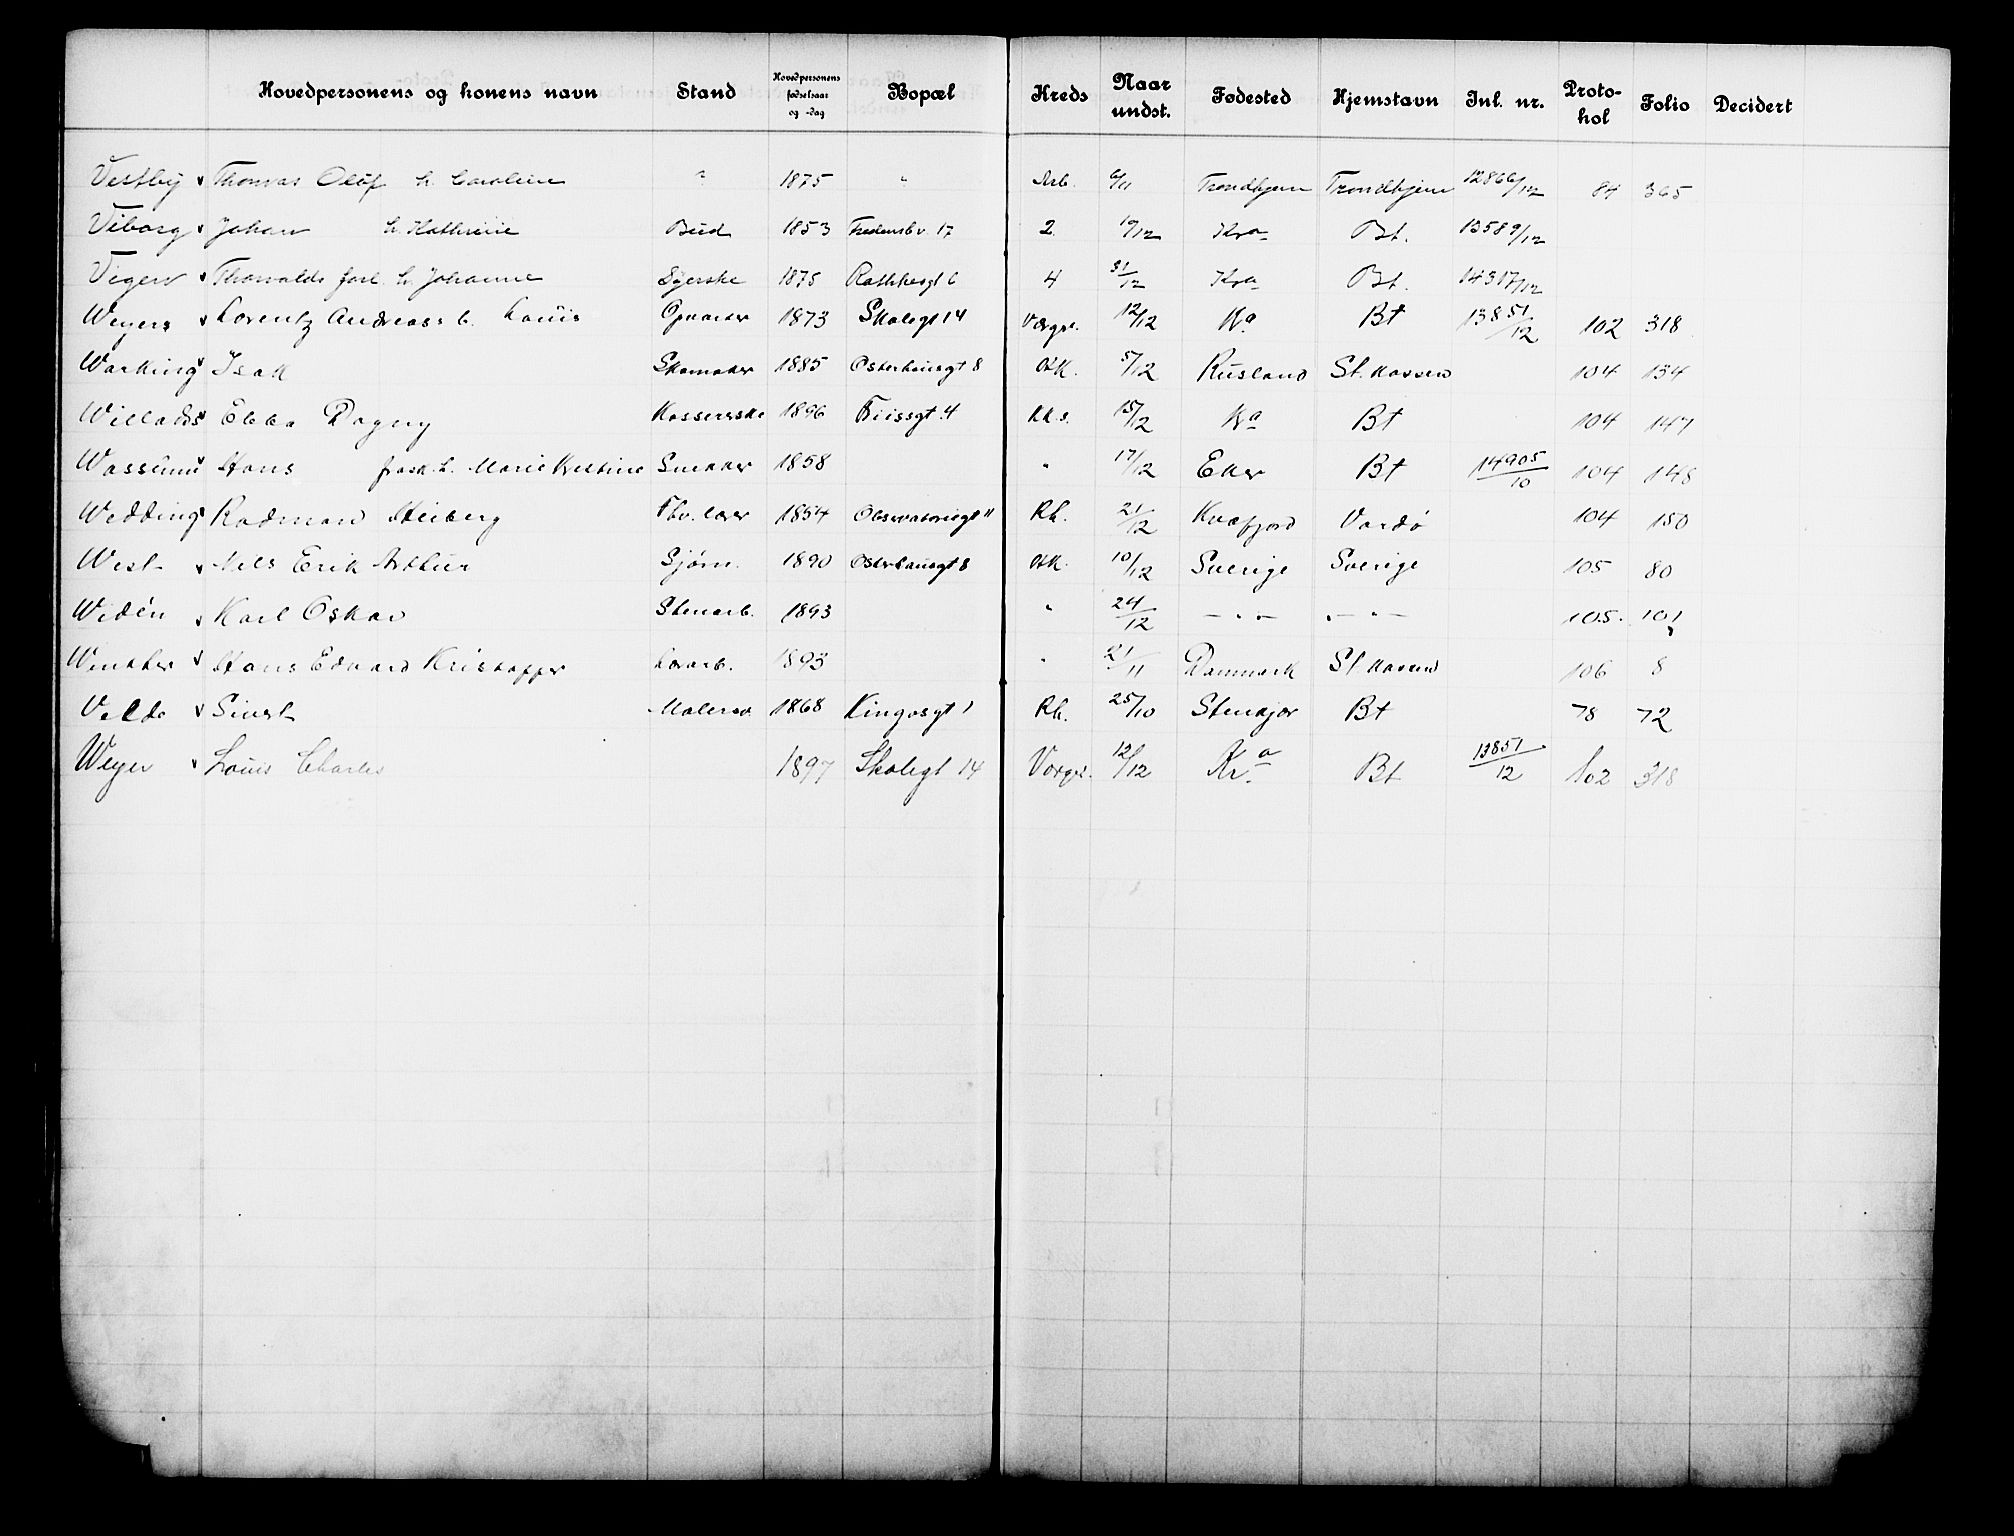 Hovedpersonens og konens navn Stand Hovedpersonens fødselsaar og -dag Bopæl Kreds Naar undst. Fødested Hjemstavn Inl. nr. Proto-kol Folio Decidert
Vestby Thomas Oluf h. Caroline " 1875 " Arb. 6/11 Trondhjem Trondhjem 12866/12 84 365
Viborg Johan h. Kathrine Bud 1853 Fredensbv. 17 2 10/12 Kra Bt. 13589/12
Vigen Thorvalds forl. h. Johanne Syerske 1875 4 31/12 Kra Bt. 14317/12
Weyers Lorentz Andreas b. Louis 1873 Skolegt 14 Værger. 12/12 Kra Bt 13851/12 102 318
Warking Isak Skomaker 1885 Osterhausgt 8 5/12 Rusland St. kassen 104 134
Willads Ebba Dagny Kassererske 1896 Friisgt. 4 15/12 Kra Bt 104 147
Hans frask. h. Marie Kristine Snekker 1858 " 17/12 Eker Bt 14905/10 104 148
Wedding Rodman Heiberg Fhv. lærer 1854 Observatoriegt 11 Rh. 21/12 Kvæfjord Vardø 104 150
West Nils Erik Arthur Sjøm. 1890 Osterhausgt 8 10/12 Sverige Sverige 105 80
Widén Karl Oskar Stenarb. 1893 " 24/12 — " — — " — 105. 101
Winther Hans Edvard Kristoffer 1893 " 21/11 Danmark St. kassen 106 8
Velde Sivert Malersv. 1868 Kingosgt 1 Rh. 25/10 Stenkjær Bt 78 72
Weyer Louis Charles 1897 Skolegt 14 Værger. 12/12 Kra Bt 13851/12 102 318